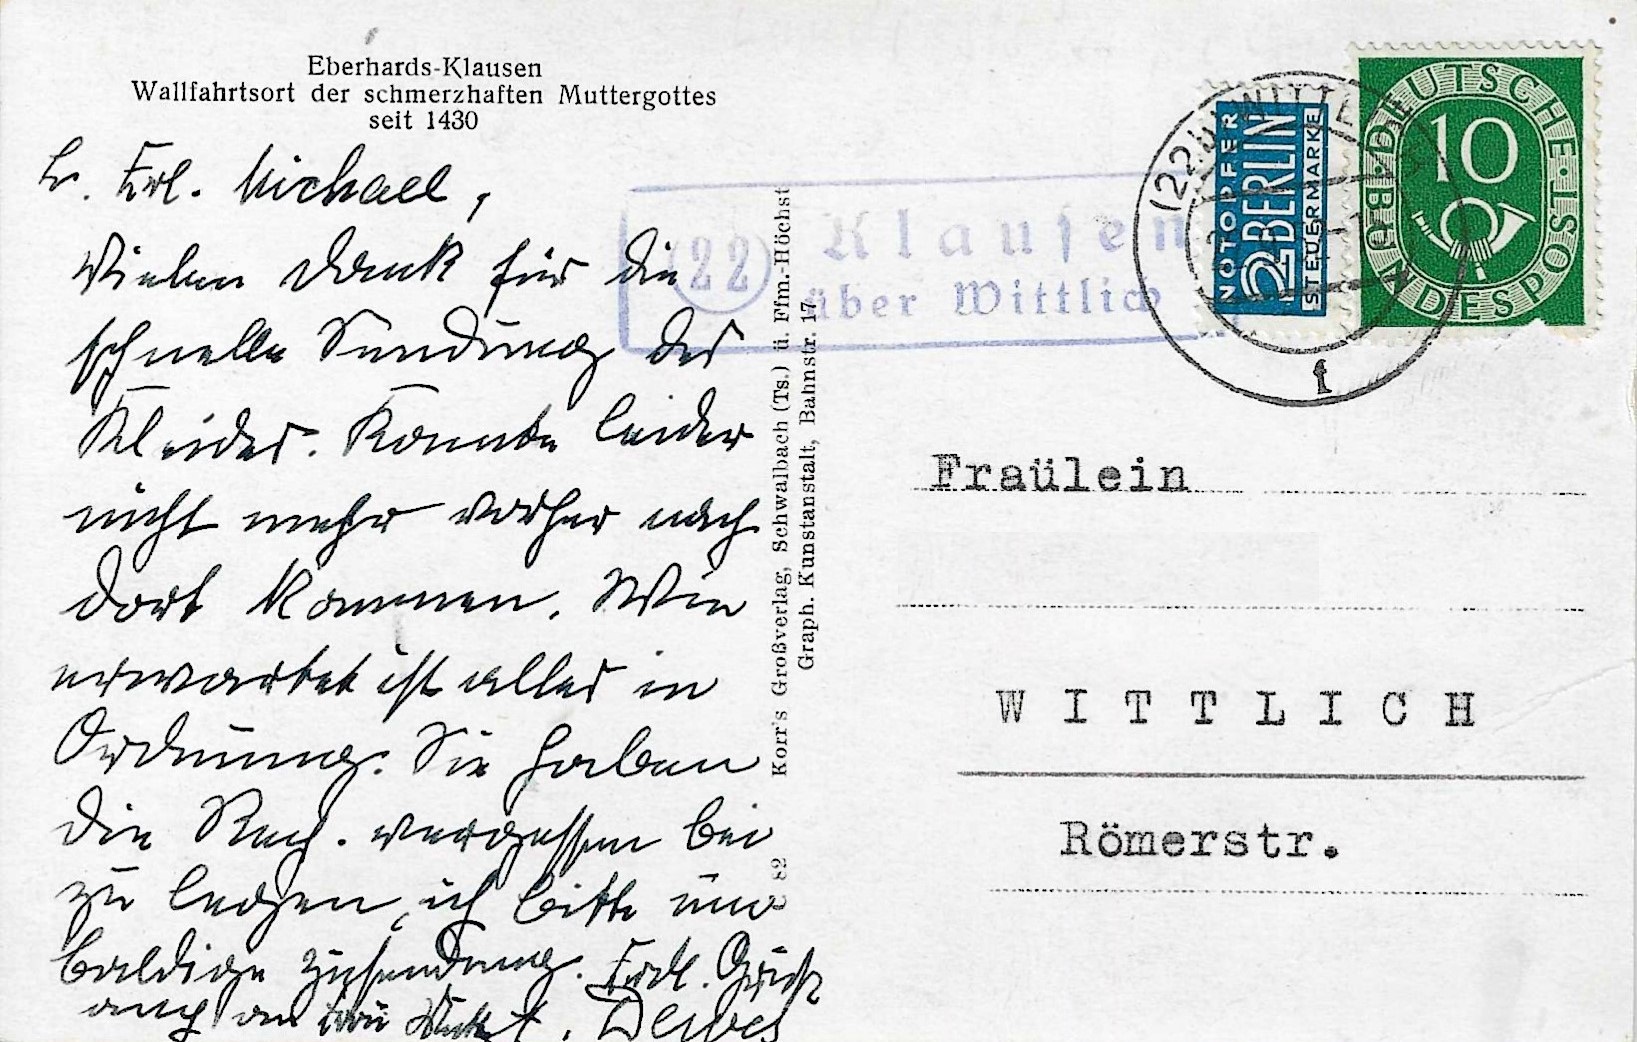 Eberhards-Klausen
Wallfahrtsort der schmerzhaften Muttergottes
seit 1430
Lb. Frl. Michael,
Vielen Dank für die
schnelle Sendung des
Kleides. Konnte leider
nicht mehr vorher nach
dort kommen. Wie
erwartet ist alles in
Ordnung. Sie haben
die Rech. vergessen bei
zu legen, ich bitte um
baldige Zusendung. Frdl. Grüße
auch an Frau
Dewes
Korr's Großverlag, Schwalbach (Ts.) ü. Ffm.-Höchst
Graph. Kunstanstalt, Bahnstr. 17
82
(22) Klausen
über Wittlich
(22b) WITTL
f
NOTOPFER
2 BERLIN
STEUERMARKE
10
DEUTSCHE BUNDESPOST
Fraülein
WITTLICH
Römerstr.